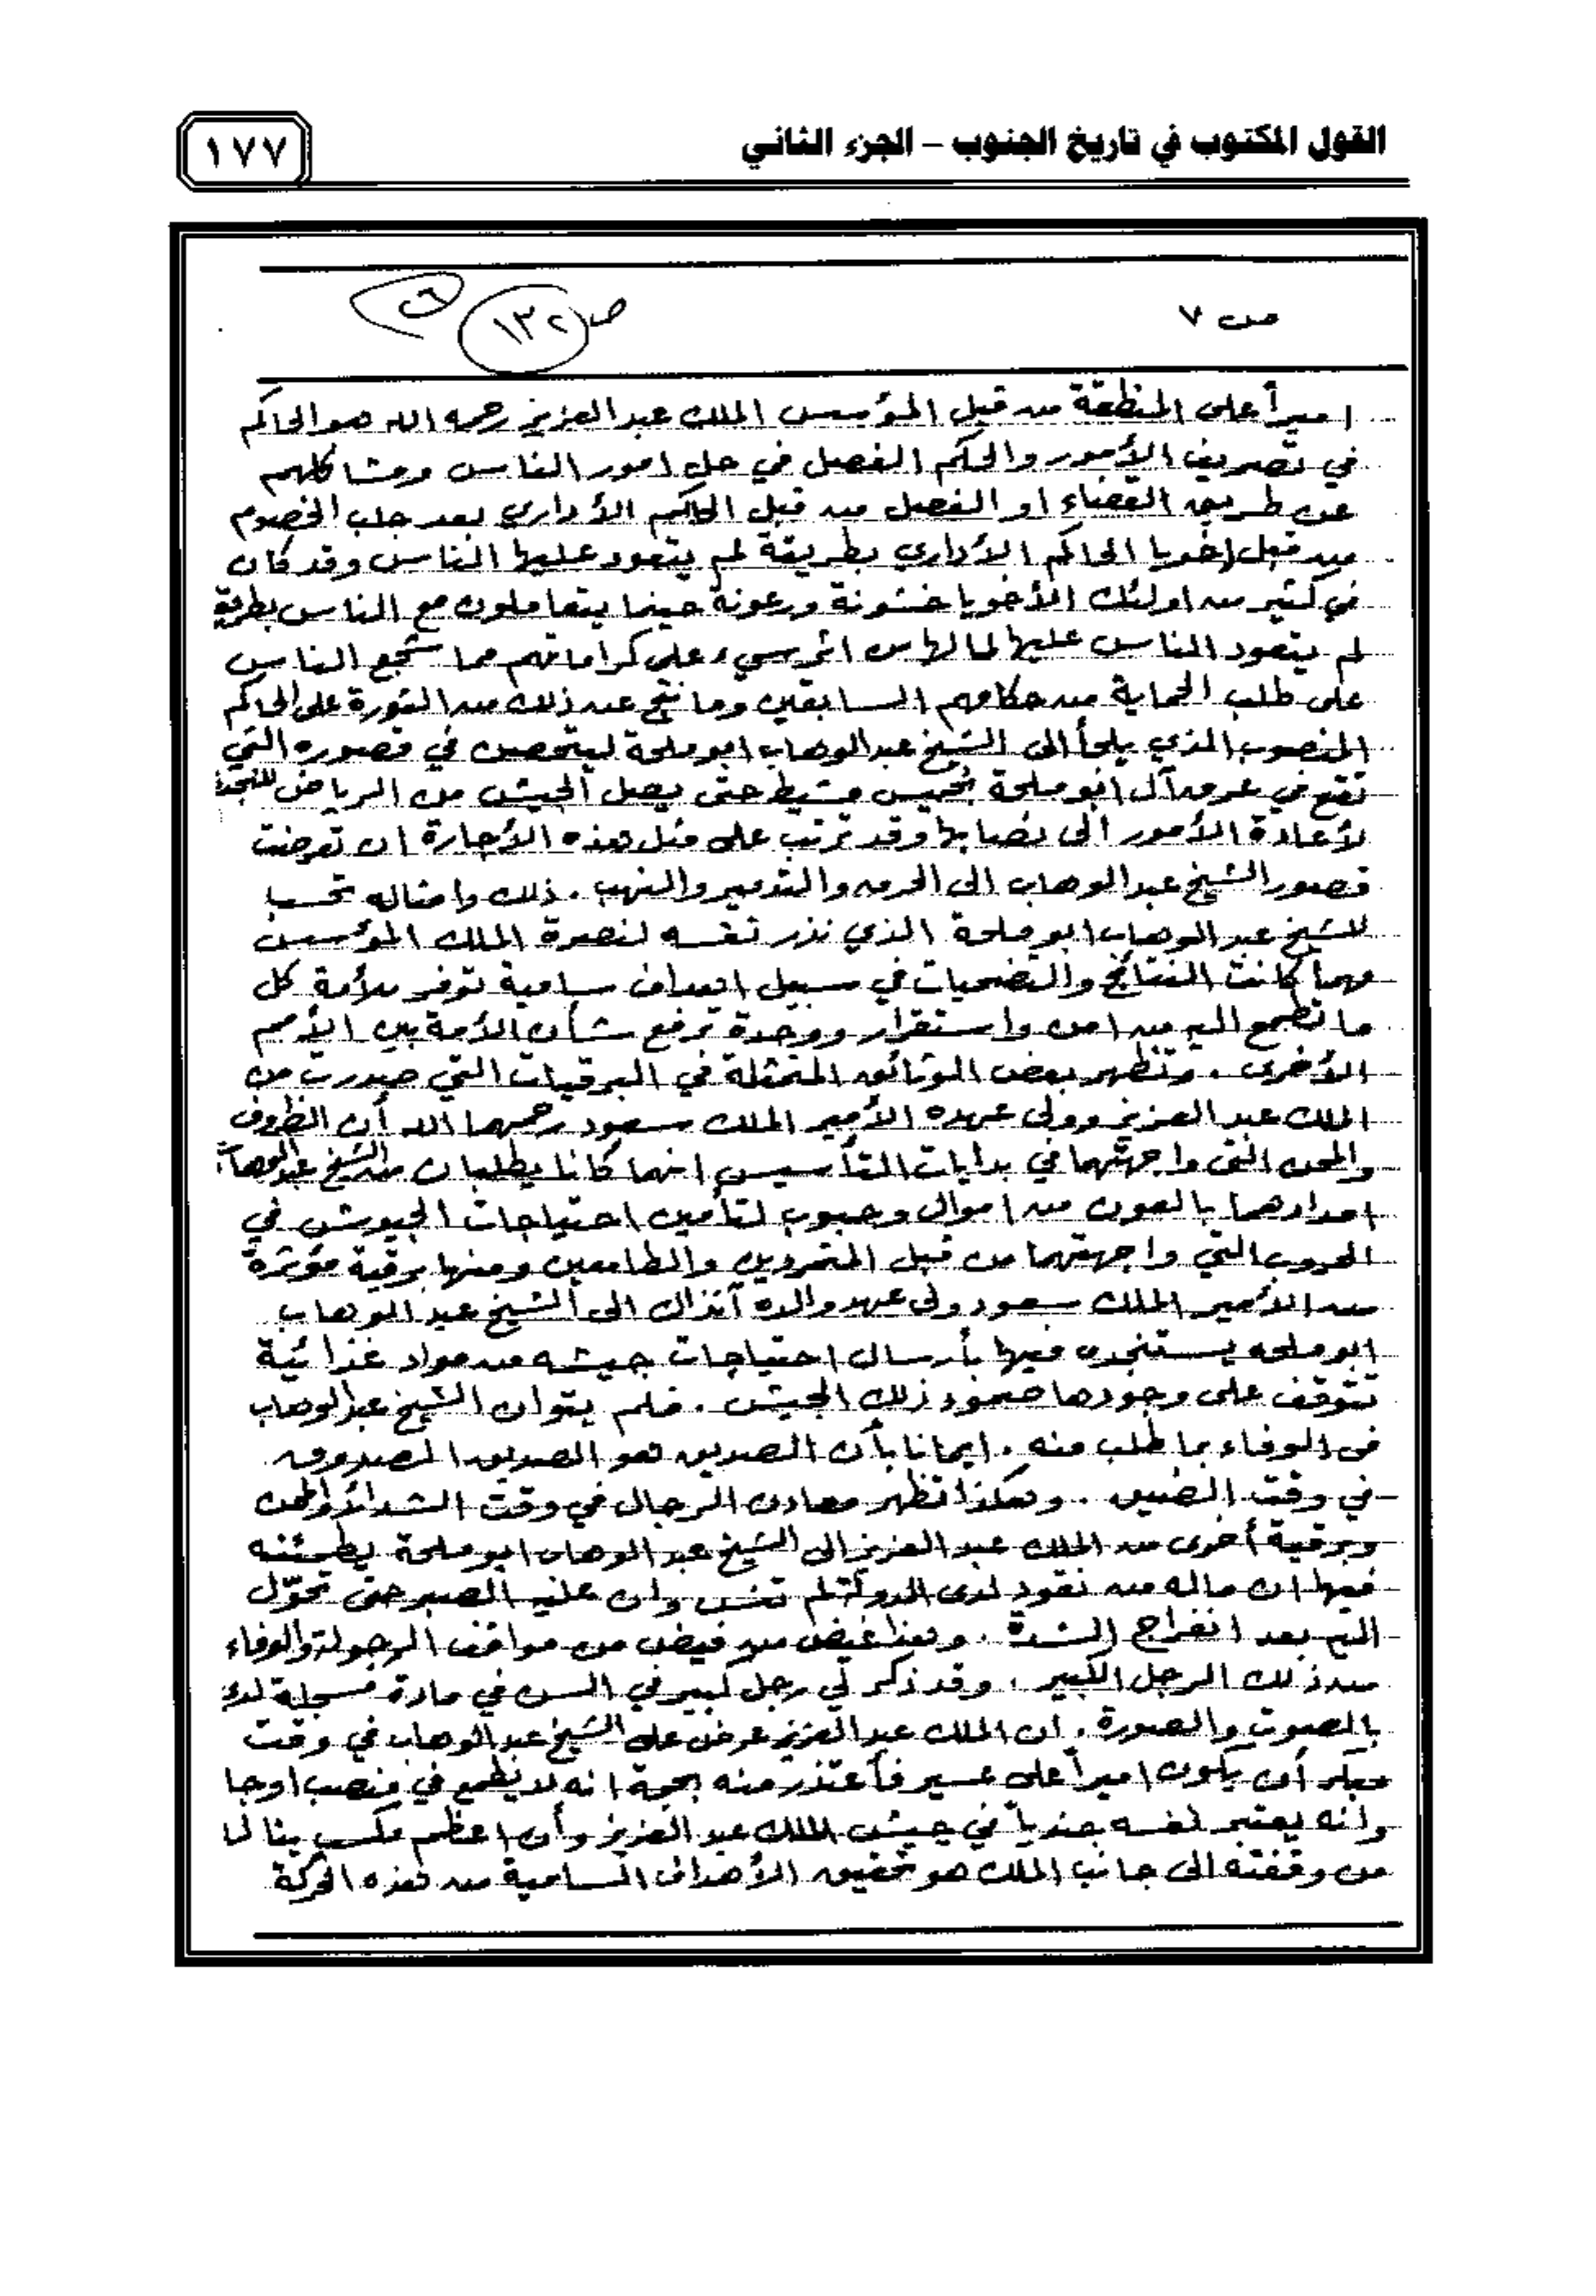 القول المكتوب في تاريخ الجنوب – الجزء الثاني
١٧٧
ص ٧
ص ١٣٢
اميراً على المنطقة من قبل المؤسس الملك عبدالعزيز رحمه الله هو الحاكم
في تصريف الأمور والحكم الفصل في حل امور الناس ومشاكلهم
عن طريق القضاء او الفصل من قبل الحاكم الأداري بعد جلب الخصوم
من قبل اخويا الحاكم الأداري بطريقة لم يتعود عليها الناس وقد كان
في كثير من اولئك الأخويا خشونة ورعونة حينما يتعاملون مع الناس بطريقة
لم يتعود الناس عليها لما لها من اثر سيء على كراماتهم مما شجع الناس
على طلب الحماية من حكامهم السابقين وما نتج عن ذلك من الثورة على الحاكم
المنصوب الذي يلجأ الى الشيخ عبدالوهاب ابو ملحة ليتحصن في قصوره التي
تقع في عرق آل ابو ملحة بخميس مشيط حتى يصل الجيش من الرياض للنجدة
لأعادة الأمور الى نصابها وقد ترتب على مثل هذه الأجارة ان تعرضت
قصور الشيخ عبدالوهاب الى الحرق والتدمير والنهب . ذلك وامثاله تحسب
للشيخ عبدالوهاب ابو ملحة الذي نذر نفسه لنصرة الملك المؤسس
مهما كانت النتائج والتضحيات في سبيل اهداف سامية توفر للأمة كل
ما تطمح اليه من امن واستقرار ووحدة ترفع شأن الأمة بين الأمم
الأخرى . وتظهر بعض الوثائق المتمثلة في البرقيات التي صدرت من
الملك عبدالعزيز وولى عهده الأمير الملك سعود رحمهما الله أن الظروف
والمحن التى واجهتهما في بدايات التأسيس انهما كانا يطلبان من الشيخ عبدالوهاب
امدادهما بالعون من اموال وحبوب لتأمين احتياجات الجيوش في
الحروب التي واجهتهما من قبل المتمردين والطامعين ومنها برقية مؤثرة
من الأمير الملك سعود ولى عهد والده آنذاك الى الشيخ عبدالوهاب
ابو ملحه يستنجده فيها بأرسال احتياجات جيشه من مواد غذائية
تتوقف على وجودها صمود ذلك الجيش . فلم يتوان الشيخ عبدالوهاب
فى الوفاء بما طلب منه . ايمانا بأن الصديق هو الصديق الصدوق
في وقت الضيق . وهكذا تظهر معادن الرجال في وقت الشدائد والمحن
وبرقية أخرى من الملك عبدالعزيز الى الشيخ عبدالوهاب ابو ملحة يطمئنه
فيها ان ماله من نقود لدى الدولة لم تنس وان عليه الصبر حتى تحوّل
اليه بعد انفراج الشدة . وهذا غيض من فيض من مواقف الرجولة والوفاء
من ذلك الرجل الكبير . وقد ذكر لي رجل كبير في السن في مادة مسجلة لدي
بالصوت والصورة . ان الملك عبدالعزيز عرض على الشيخ عبدالوهاب في وقت
مبكر أن يكون اميراً على عسير فأعتذر منه بحجة انه لا يطمع في منصب او جا
وانه يعتبر نفسه جندياً في جيش الملك عبدالعزيز وأن اعظم مكسب ينال
من وقفته الى جانب الملك هو تحقيق الأهداف السامية من هذه الحركة